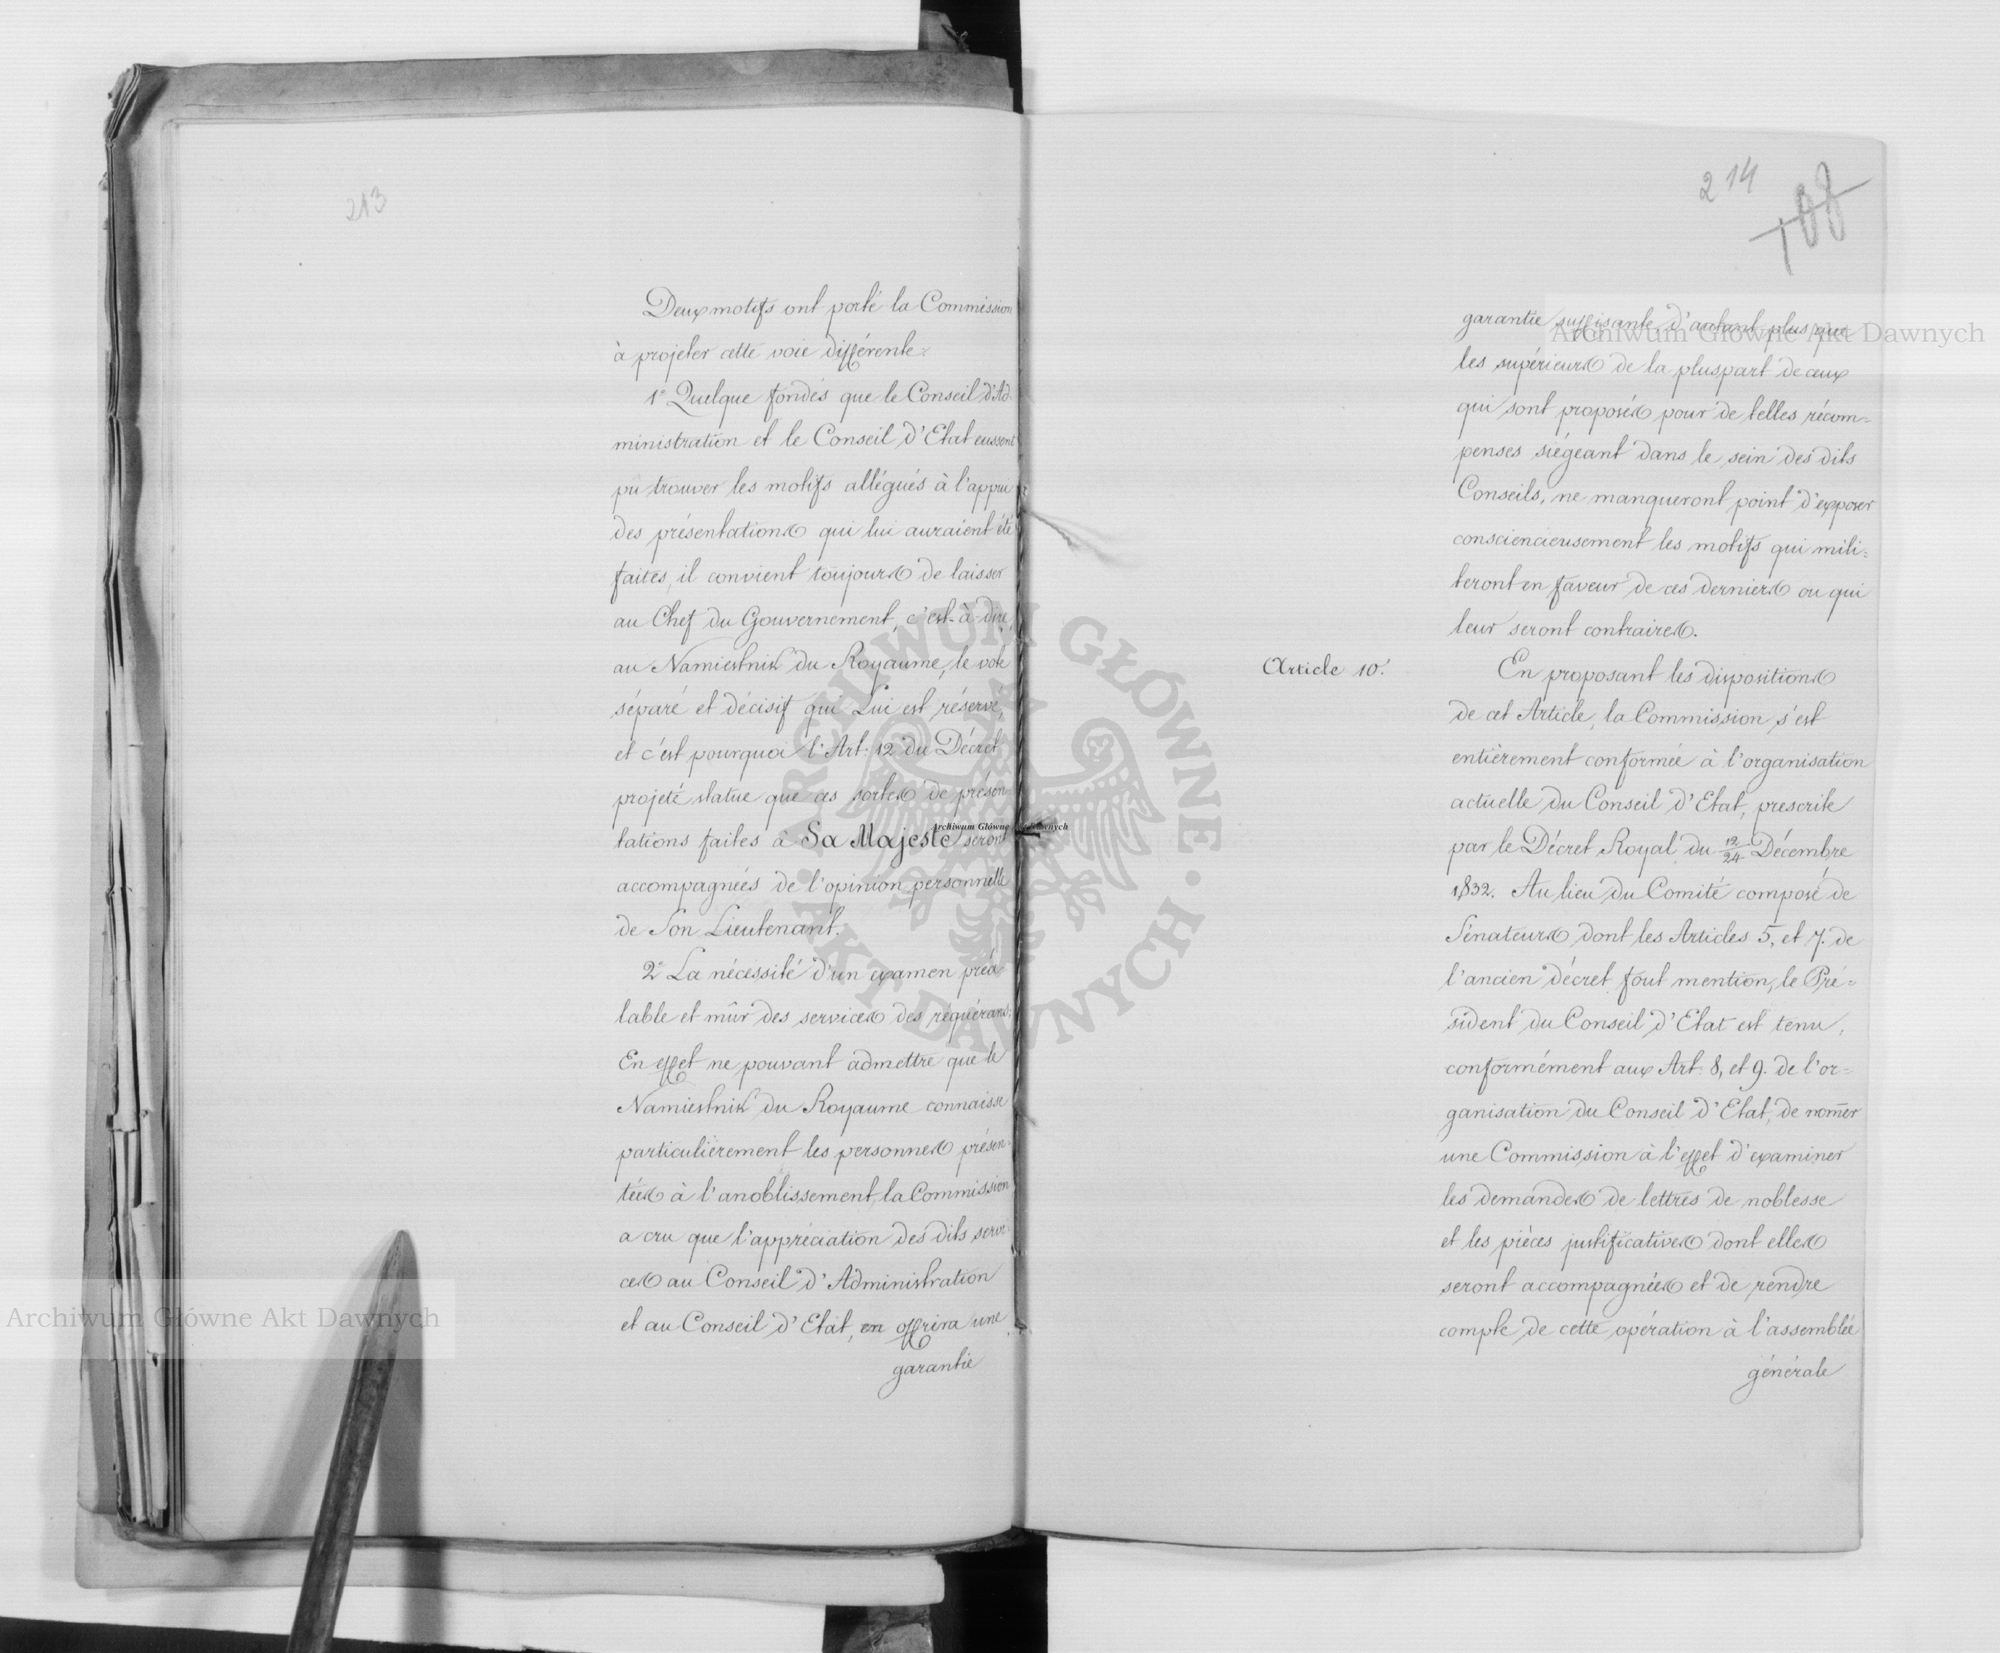 213
Deux motifs ont porté la Commission
à projeter cette voie différente.
1° Quelque fondés que le Conseil d'Ad-
ministration et le Conseil d'Etat eussent
pû trouver les motifs allégués à l'appui
des présentations qui lui auraient été
faites, il convient toujours de laisser
au Chef du Gouvernement, c'est-à-dire,
au Namiestnik du Royaume, le vote
séparé et décisif qui Lui est réservé,
et c'est pourquoi l'Art: 12 du Décret
projeté statue que ces sortes de présen-
tations faites à Sa Majesté seront
accompagnées de l'opinion personnelle
de Son Lieutenant.
2° La nécessité d'un examen préa-
lable et mûr des services des requérans;
En effet ne pouvant admettre que le
Namiestnik du Royaume connaisse
particulièrement les personnes présen-
tées à l'anoblissement, la Commission
a cru que l'appréciation des dits servi-
ces au Conseil d'Administration
et au Conseil d'Etat, en offrira une
garantie
214
108
garantie suffisante, d'autant plus que
les supérieurs de la pluspart de ceux
qui sont proposés pour de telles récom-
penses siégeant dans le sein des dits
Conseils, ne manqueront point d'exposer
consciencieusement les motifs qui mili-
teront en faveur de ces derniers ou qui
leur seront contraires.
Article 10.
En proposant les dispositions
de cet Article, la Commission s'est
entièrement conformée à l'organisation
actuelle du Conseil d'Etat, prescrite
par le Décret Royal du 12/24 Décembre
1832. Au lieu du Comité composé de
Sénateurs dont les Articles 5, et 7. de
l'ancien décret font mention, le Pré-
sident du Conseil d'Etat est tenu,
conformément aux Art. 8, et 9. de l'or-
ganisation du Conseil d'Etat, de nom̄er
une Commission à l'effet d'examiner
les demandes de lettres de noblesse
et les pièces justificatives dont elles
seront accompagnées et de rendre
compte de cette opération à l'assemblée
générale
Archiwum Główne Akt Dawnych
Archiwum Główne Akt Dawnych
Archiwum Główne Akt Dawnych
ARCHIWUM GŁÓWNE · AKT DAWNYCH ·